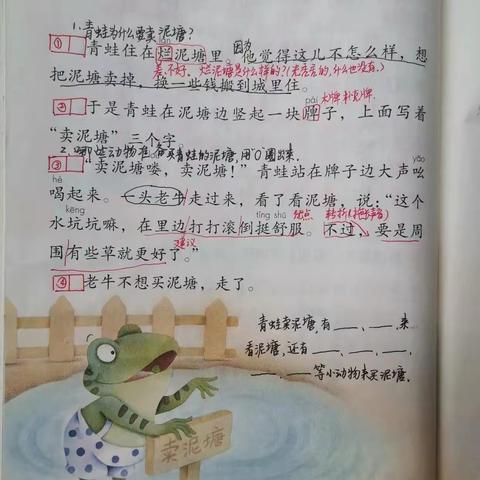 1.青蛙为什么要卖泥塘?
① 青蛙住在烂泥塘里。他觉得这儿不怎么样，想
因为
差、不好。烂泥塘是什么样的?(光秃秃的,什么也没有。)
把泥塘卖掉，换一些钱搬到城里住。
pái 木牌 补充牌
② 于是青蛙在泥塘边竖起一块牌子，上面写着
“卖泥塘”三个字。
2.哪些动物准备买青蛙的泥塘,用“○”圈出来.
③ “卖泥塘喽，卖泥塘！”青蛙站在牌子边大声吆
yāo
hè
喝起来。一头老牛走过来，看了看泥塘，说：“这个
kēng tǐng shū 优点 转折
水坑坑嘛，在里边打打滚倒挺舒服。不过，要是周
围有些草就更好了。”
建议
④ 老牛不想买泥塘，走了。
青蛙卖泥塘,有___、___来
看泥塘,还有___、___、___、
___、___等小动物来买泥塘.
卖泥塘